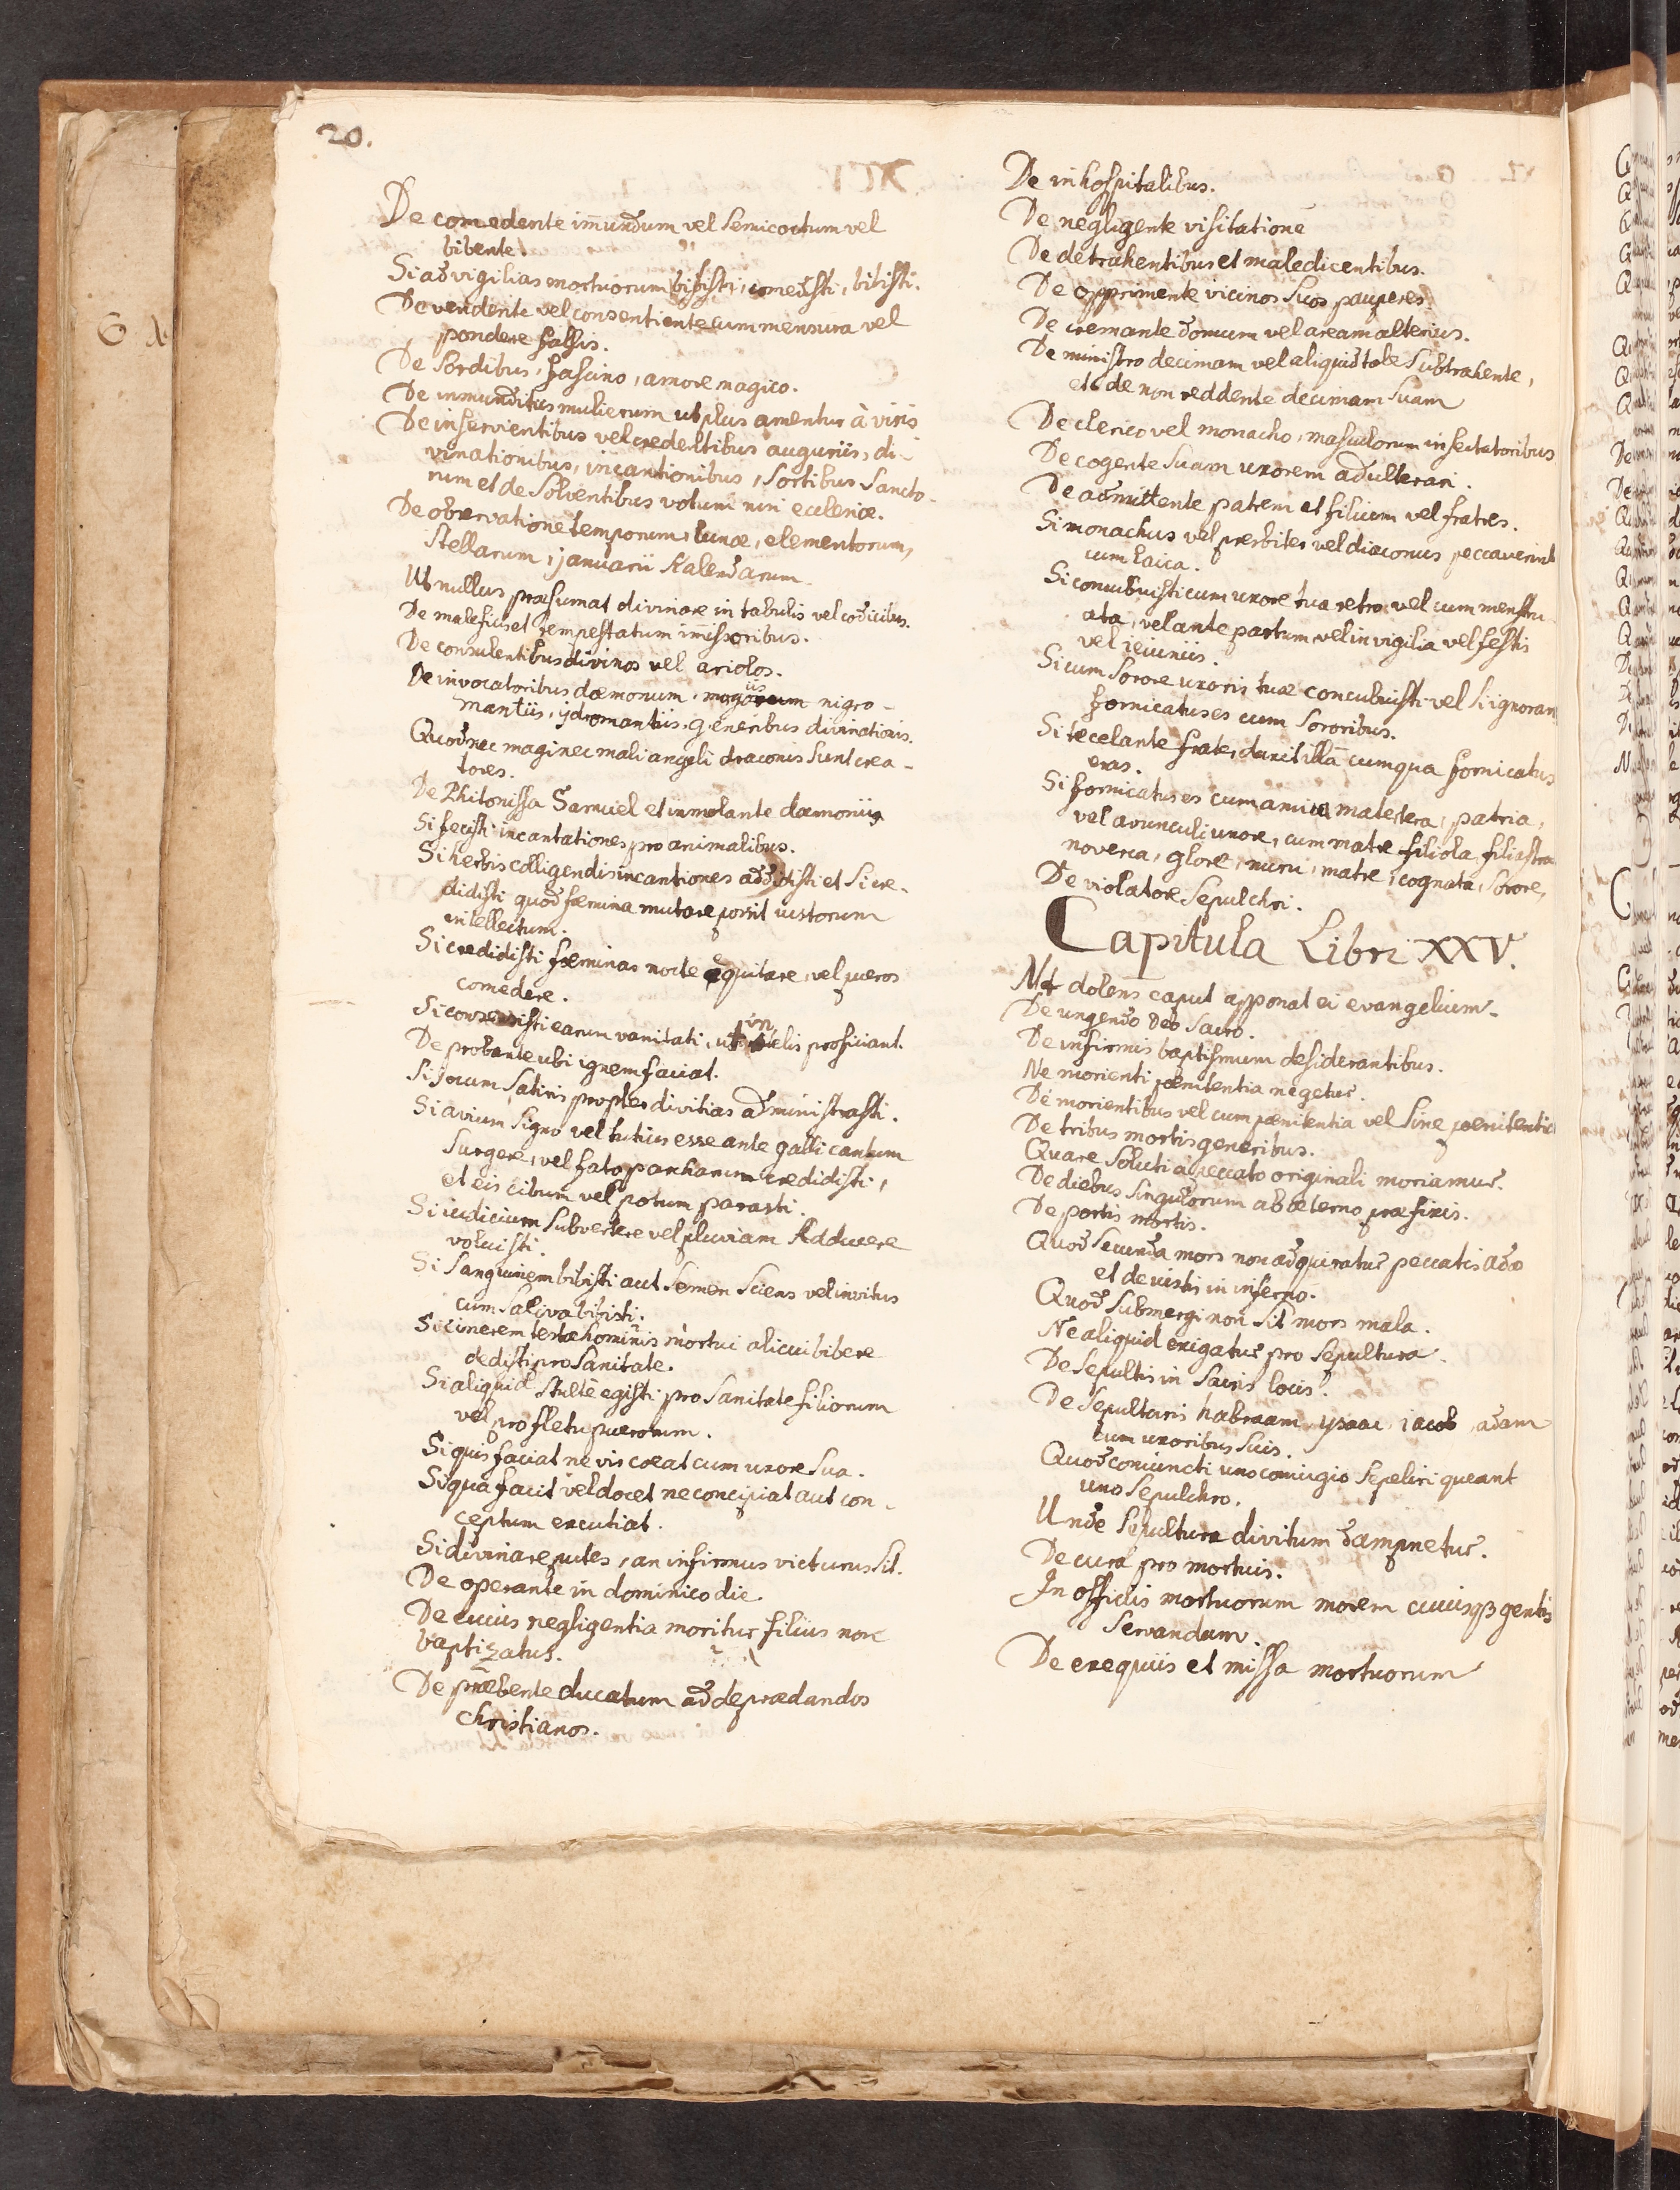 20.
De comedente im̄undum vel semicoctum vel
bibente.
Si ad vigilias mortuorum bibisti, comedisti, bibisti.
De vendente vel consentiente cum mensura vel
pondere falsis.
De sordibus, fascino, amore magico.
De inmunditiis mulierum ut plus amentur à viris
De inservientibus vel credentibus auguriis, di-
vinationibus, incantionibus, sortibus sancto-
rum et de solventibus votum nisi ecclesiæ.
De observatione temporum, lunæ, elementorum,
stellarum, januarii Kalendarum.
Ut nullus præsumat divinare in tabulis vel codicibus.
De maleficis et tempestatum im̄issoribus.
De consulentibus divinos vel ariolos.
De invocatoribus dæmonum, nigro-
mantiis, ydromantiis, generibus divinationis.
Quod nec magi nec mali angeli draconis sunt crea-
tores.
De Phitonissa Samuel et inmolante dæmoniis
Si fecisti incantationes pro animalibus.
Si herbis colligendis incantiones addidisti et si cre-
didisti quod fæmina mutare possit iustorum
intellectum.
Si credidisti fæminas nocte equitare, vel pueros
comedere.
Si earum vanitati, ut proficiant.
De probante ubi ignem faciat.
Si Satiris propter divitias administrasti.
Si avium signo vel tutius esse ante galli cantum
surgere, vel fato parcharum credidisti,
et eis cibum vel potum parasti.
Si iudicium subvertere vel pluviam Adducere
voluisti.
Si sanguinem bibisti aut semen sciens vel invitus
cum saliva bibisti.
Si cinerem testæ hominis mortui alicui bibere
dedisti pro sanitate.
Si aliquid stultè egisti pro sanitate filiorum
vel pro fletu puerorum.
Si quis faciat ne vis coeat cum uxore sua.
Si qua facit vel docet ne concipiat aut con-
ceptum excutiat.
Si divinare putes, an infirmus victurus sit.
De operante in dominico die
De cuius negligentia moritur filius non
baptizatus.
De præbente ducatum ad deprædandos
christianos.
De inhospitalibus.
De negligente visitatione
De detrahentibus et maledicentibus.
De opprimente vicinos suos pauperes.
De cremante domum vel aream alterius.
De ministro decimam vel aliquid tale subtrahente,
et de non reddente decimam suam
De clerico vel monacho, masculorum insectatoribus
De cogente suam uxorem adulterari.
De admittente patrem et filium vel fratres.
Si monachus vel presbiter vel diaconus peccaverint
cum laica.
Si concubuisti cum uxore tua retro vel cum menstru-
ata, vel ante partum vel in vigilia vel festis
vel ieiuniis.
Si cum sorore uxoris tuæ concubuisti vel si ignoran
fornicatus es cum sororibus.
Si te celante frater duxit illā cum qua fornicatus
eras.
Si fornicatus es cum amita matertera, patria,
vel avunculi uxore, cum matre filiola, filiastra
noverca, glore, nuru, matre, cognata, sorore,
De violatore sepulchri.
Capitula Libri XXV.
Ut dolens caput apponat ei evangelium.
De ungendo Deo sacro.
De infirmis baptismum desiderantibus.
Ne morienti pœnitentia negetur.
De morientibus vel cum pœnitentia vel sine pœnitentia
De tribus mortis generibus.
Quare soluti a peccato originali moriamur.
De diebus singulorum ab æterno præfixis.
De portis mortis.
Quod secunda mors non adquiratur peccatis adæ
et de iustis in inferno.
Quod submergi non sit mors mala.
Ne aliquid exigatur pro sepultura.
De sepultis in sacris locis.
De sepulturis habraam, ysaac, iacob, adam
cum uxoribus suis.
Quod coniuncti uno coniugio sepeliri queant
uno sepulchro.
Unde sepultura divitum dampnetur.
De cura pro mortuis.
In officiis mortuorum morem cuiusqȝ gentis
servandum.
De exequiis et missa mortuorum